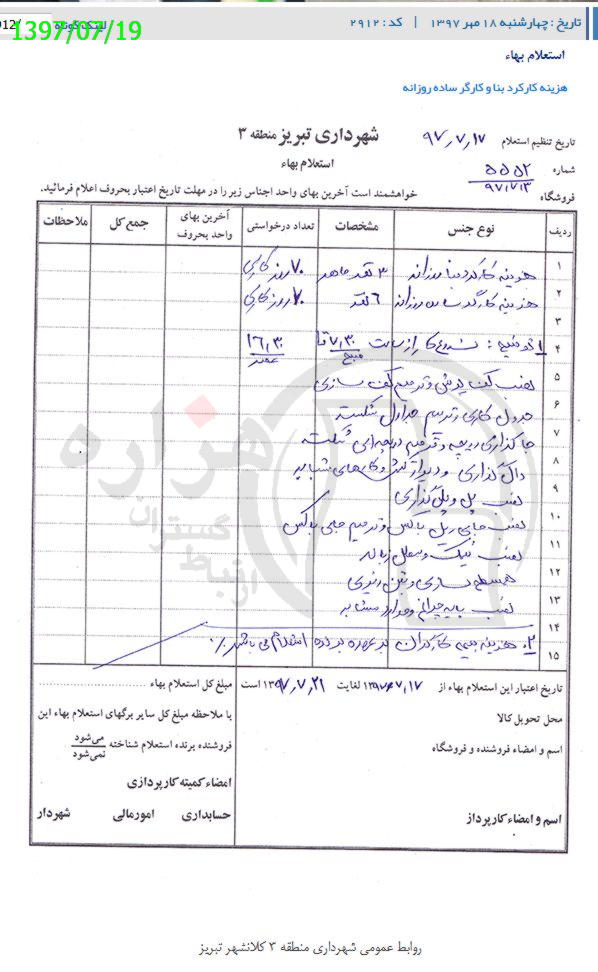 تاریخ : چهارشنبه ۱۸ مهر ۱۳۹۷ | کد : ۲۹۱۲
لینک کوتاه
1397/07/19
استعلام بهاء
هزینه کارکرد بنا و کارگر ساده روزانه
شهرداری تبریز منطقه ۳
تاریخ تنظیم استعلام ۹۷٫۷٫۱۷
استعلام بهاء
شماره ۵۵۵۲
۹۷٫۷٫۳
فروشگاه
خواهشمند است آخرین بهای واحد اجناس زیر را در مهلت تاریخ اعتبار بحروف اعلام فرمائید.
ردیف نوع جنس مشخصات تعداد درخواستی آخرین بهای واحد بحروف جمع کل ملاحظات
۱ هزینه کارکرد بنا روزانه ۳ نفر ماهر ۷۰ روز کاری
۲ هزینه کارگر ساده روزانه ۶ نفر ۷۰ روز کاری
۳
۴ ۱ توضیح : شروع کار از ساعت ۷٫۳۰ صبح تا ۱۶٫۳۰ عصر
۵ نصب کف پوش و ترمیم کف سازی
۶ جدول گذاری و ترمیم جداول شکسته
۷ جاگذاری دریچه و ترمیم دریچه های شکسته
۸ دال گذاری و دیوار کشی و کارهای مشابه
۹ نصب پل و پل گذاری
۱۰ نصب
۱۱ نصب نیمکت و سطل زباله
۱۲ همسطح سازی و بتن ریزی
۱۳ نصب پایه چراغ و موارد مشابه
۱۴
۱۵ ۲. هزینه بیمه کارگران بر عهده برنده استعلام می باشد ٪
تاریخ اعتبار این استعلام بهاء از ۱۳۹۷٫۷٫۱۷ لغایت ۱۳۹۷٫۷٫۲۱ است
مبلغ کل استعلام بهاء
محل تحویل کالا
با ملاحظه مبلغ کل سایر برگهای استعلام بهاء این
فروشنده برنده استعلام شناخته می‌شود
نمی‌شود
اسم و امضاء فروشنده و فروشگاه
امضاء کمیته کارپردازی
اسم و امضاء کارپرداز
حسابداری امورمالی شهردار
هزاره
گستران
ارتباط
روابط عمومی شهرداری منطقه ۳ کلانشهر تبریز